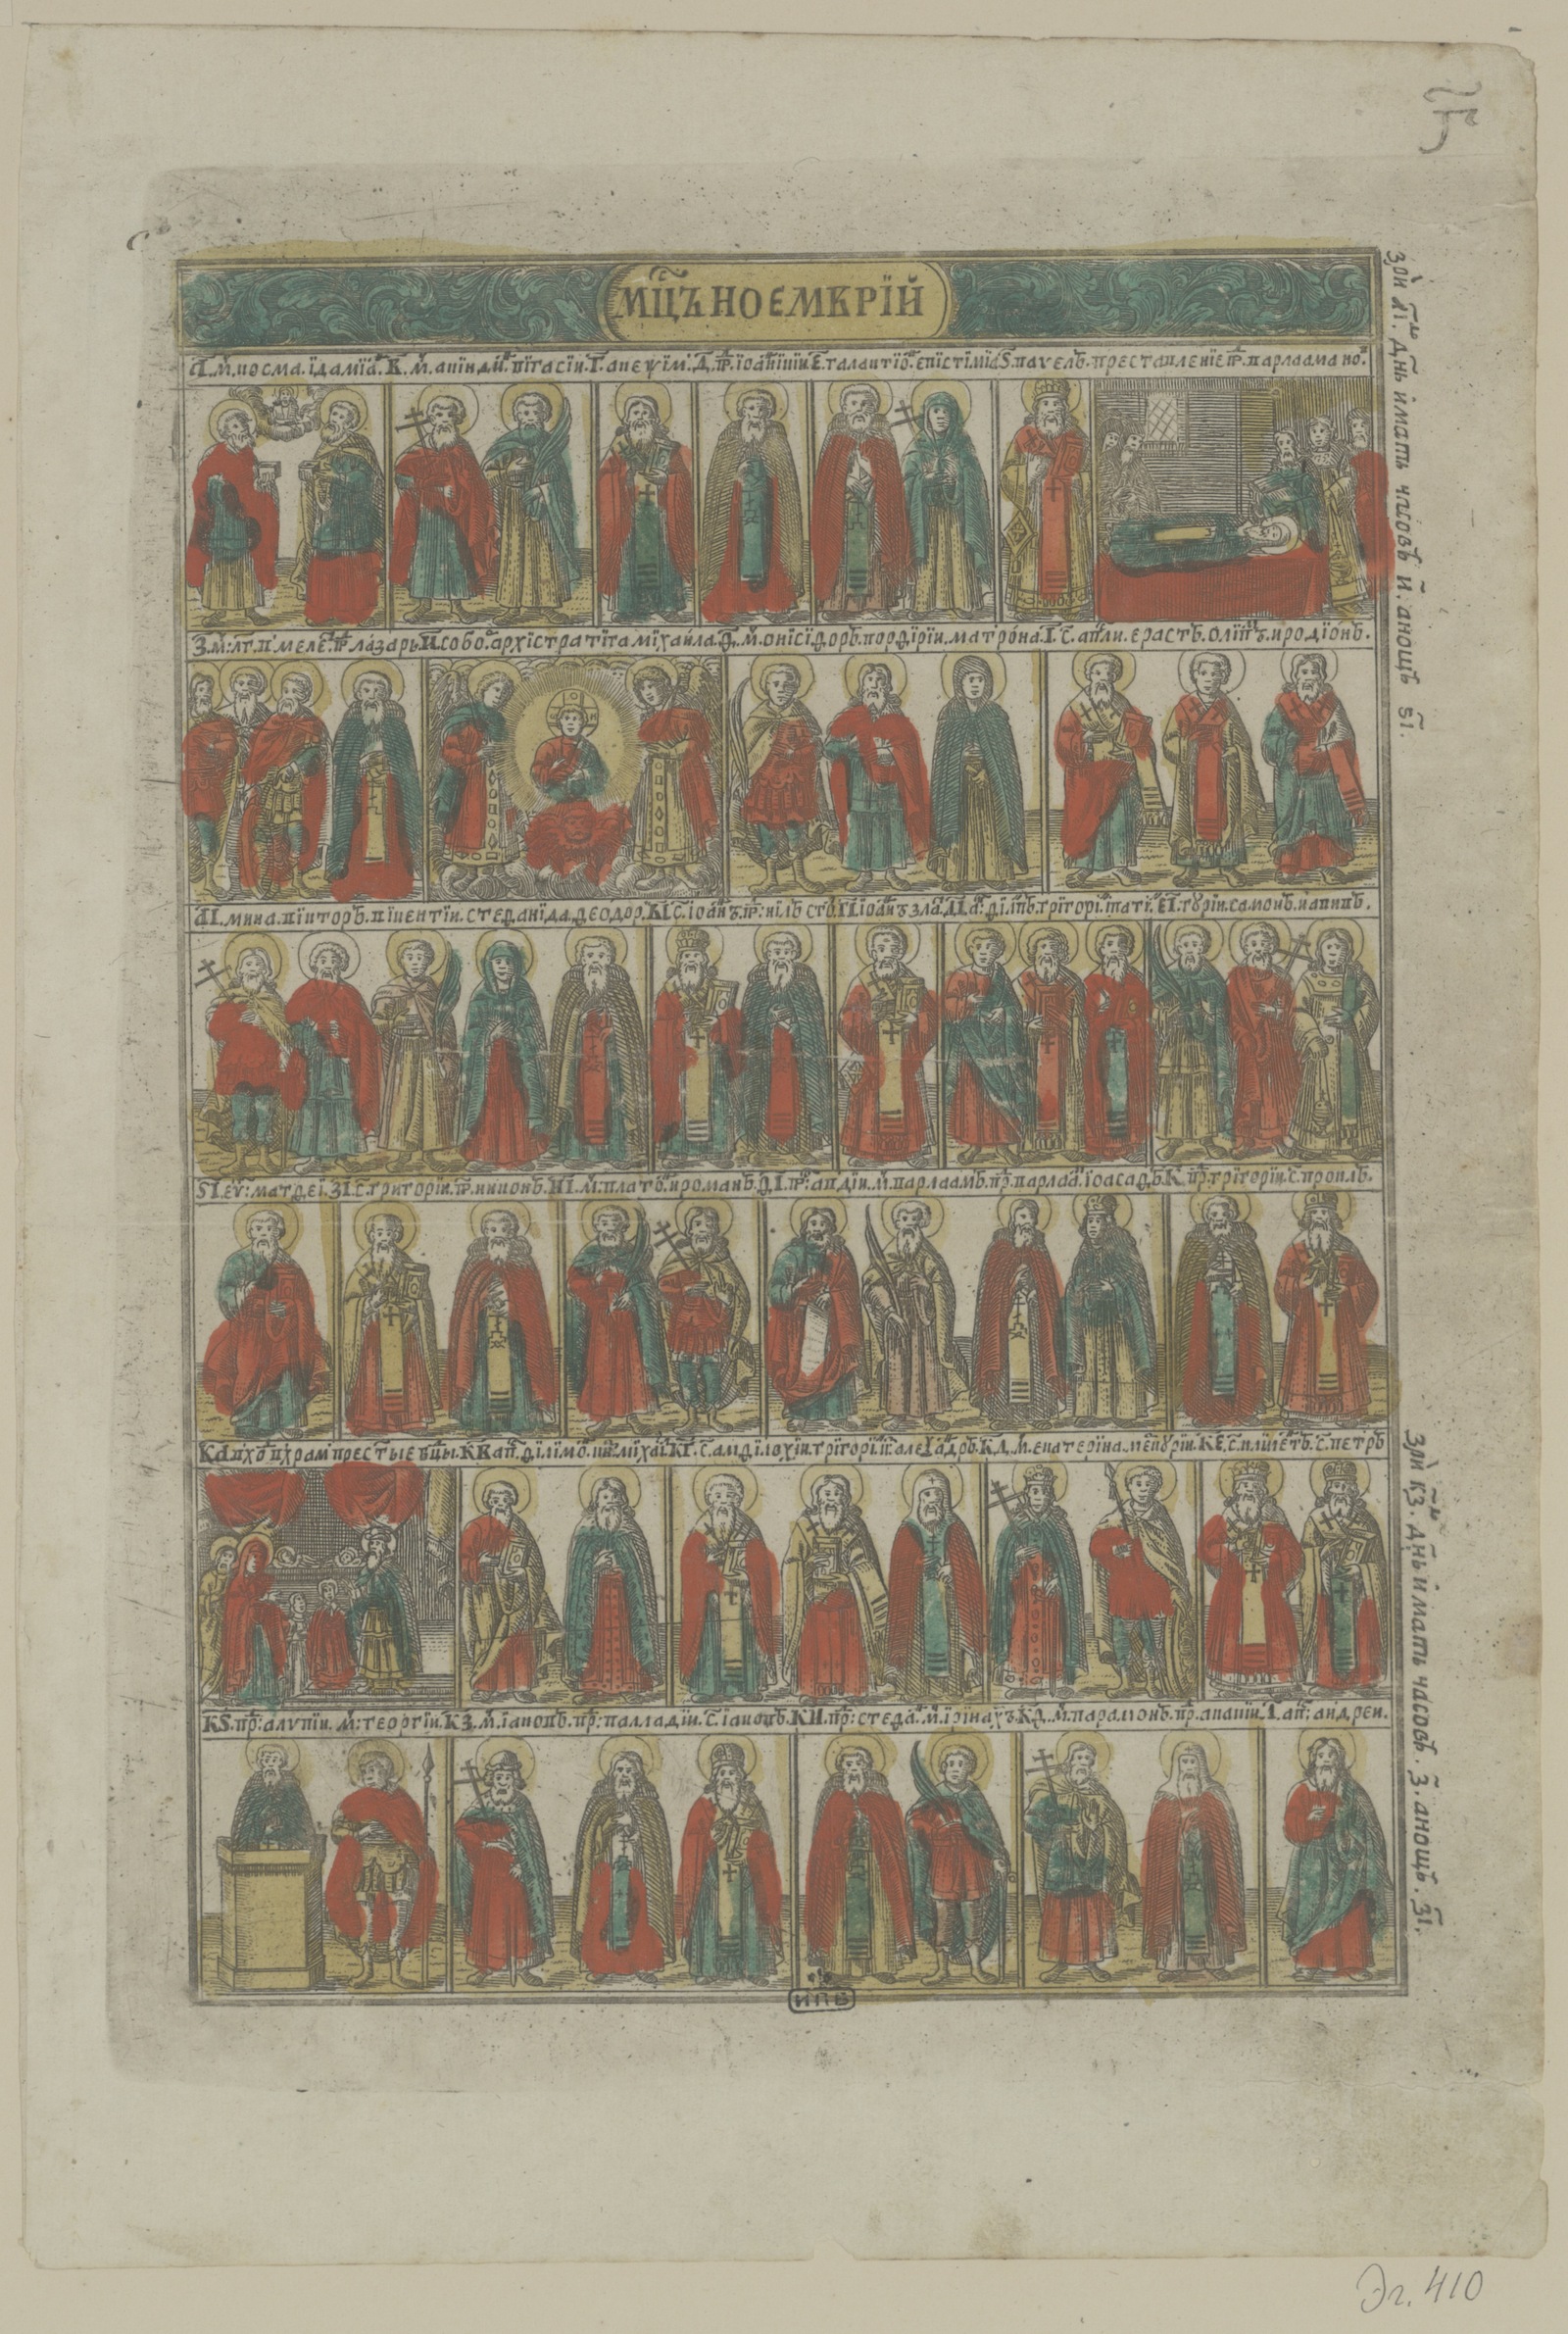 МЦ҃Ъ НОЕМВРІЙ
А҃.М.косма.їдамїа. В҃.М.акіндй.пігасіи. Г҃.акеѱім. Д҃.пр.їоанікіи Е҃.галактіо.епістіміа Ѕ҃.павелъ.преставленіе пр.варлаама но.
З҃.м:лг.в меле.пр лазарь И҃.собо.архістратіга міхаила.Ѳ҃.М.онісіѳоръ.порѳіріи.матрона.І҃.С.апли.ерастъ.оліпъ.иродіонъ.
АІ҃.мина.вікторъ.вікентіи.стеѳаніда.ѳеодор.ВІ҃.С.іоанъ.пр:нілъ сто.ГІ҃.іоанъ зла.ДІ҃.ап:ѳілпъ.грігорі. ЕІ҃.гꙋріи.самонъ.иавивъ.
ЅІ҃.еѵ:матѳеі.ЗІ҃.С.григоріи.пр.никонъ.ИІ҃.М.плато.ироманъ.ѲІ҃.пр:авдіи.М.варлаамъ.пр.варлаа.їоасаѳъ.К҃.пр.грігоріи.С.проклъ.
КА҃.вхо вхрам престыѧ бцы.КВ҃ ап.ѳілімо.міхаі КГ҃.С.амѳілохіи.грігорі.алеѯадръ.КД҃.М.екатеріна.меркꙋріи.КЕ҃.С.кліметъ.С.петръ
КЅ҃.пр:алѵпіи.М:георгіи.КЗ҃.М.іаковъ.пр:палладіи.С.іаковъ.КИ҃.пр:стеѳа.М.ірінахъ КѲ҃.М.парамонъ.пр.акакіи.Л҃.ап:андреи.
ИПБ
зри дн҃ь имать часовъ И҃.анощь ЅІ҃.
зри КЗ҃.дн҃ь имать часовъ.З҃.анощь.ЗІ҃.
Эг. 410